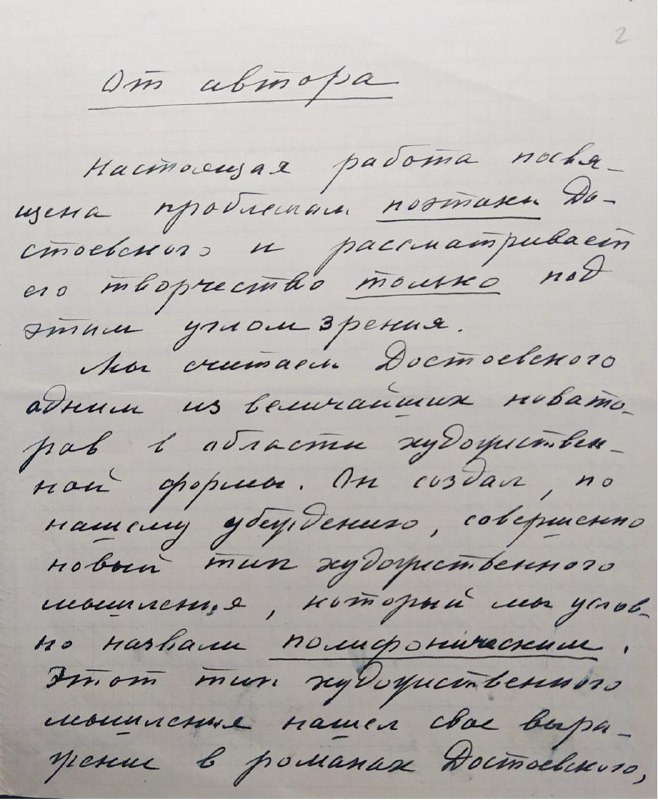 2
От автора
Настоящая работа посвя-
щена проблемам поэтики До-
стоевского и рассматривает
его творчество только под
этим углом зрения.
Мы считаем Достоевского
одним из величайших новато-
ров в области художествен-
ной формы. Он создал, по
нашему убеждению, совершенно
новый тип художественного
мышления, который мы услов-
но назвали полифоническим.
Этот тип художественного
мышления нашел свое выра-
жение в романах Достоевского,